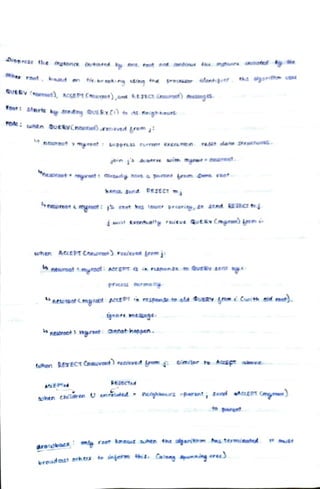 Suppress the instance initiated by one root and continue the instance initiated by the
other root, based on tie-breaking using the processor identifier. The algorithm uses
QUERY (newroot), ACCEPT (newroot), and REJECT (newroot) messages.
root: starts by sending QUERY(i) to its neighbours.
node: when QUERY(newroot) received from j:
↳ newroot > myroot: suppress current execution. reset data structures.
join j's subtree with myroot = newroot.
↳ newroot = myroot: already have a parent from same root.
hence send REJECT to j
↳ newroot < myroot: j's root has lower priority, so send REJECT to j.
j will eventually receive QUERY (myroot) from i.
when ACCEPT (newroot) received from j:
↳ newroot = myroot: ACCEPT is in response to QUERY sent
process normally.
↳ newroot < myroot: ACCEPT in response to old QUERY from i (with old root).
ignore message.
↳ newroot > myroot: cannot happen.
when REJECT (newroot) received from j: similar to ACCEPT above.
ACCEPTed REJECTed
when children U unrelated = neighbours - parent, send ACCEPT (myroot)
to parent
drawback: only root knows when the algorithm has terminated. it must
broadcast others to inform this. (along spanning tree)